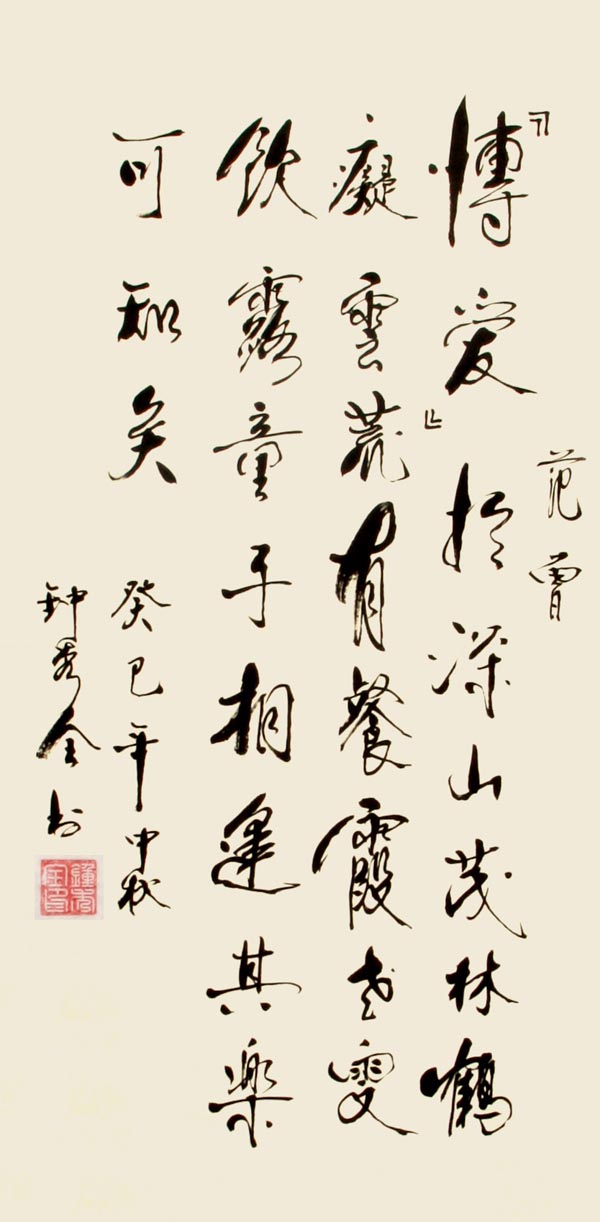 范曾
「博爱」於深山茂林鶴
癡雲荒有餐霞老叟
飲露童子相逢其樂
可知矣
癸巳年中秋
鈡秀全书
鍾秀全印